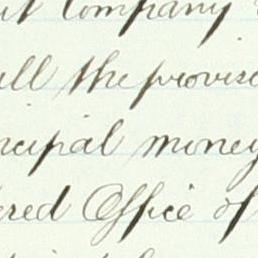 ut Company
ill the proviso
ncipal money
ered Office of